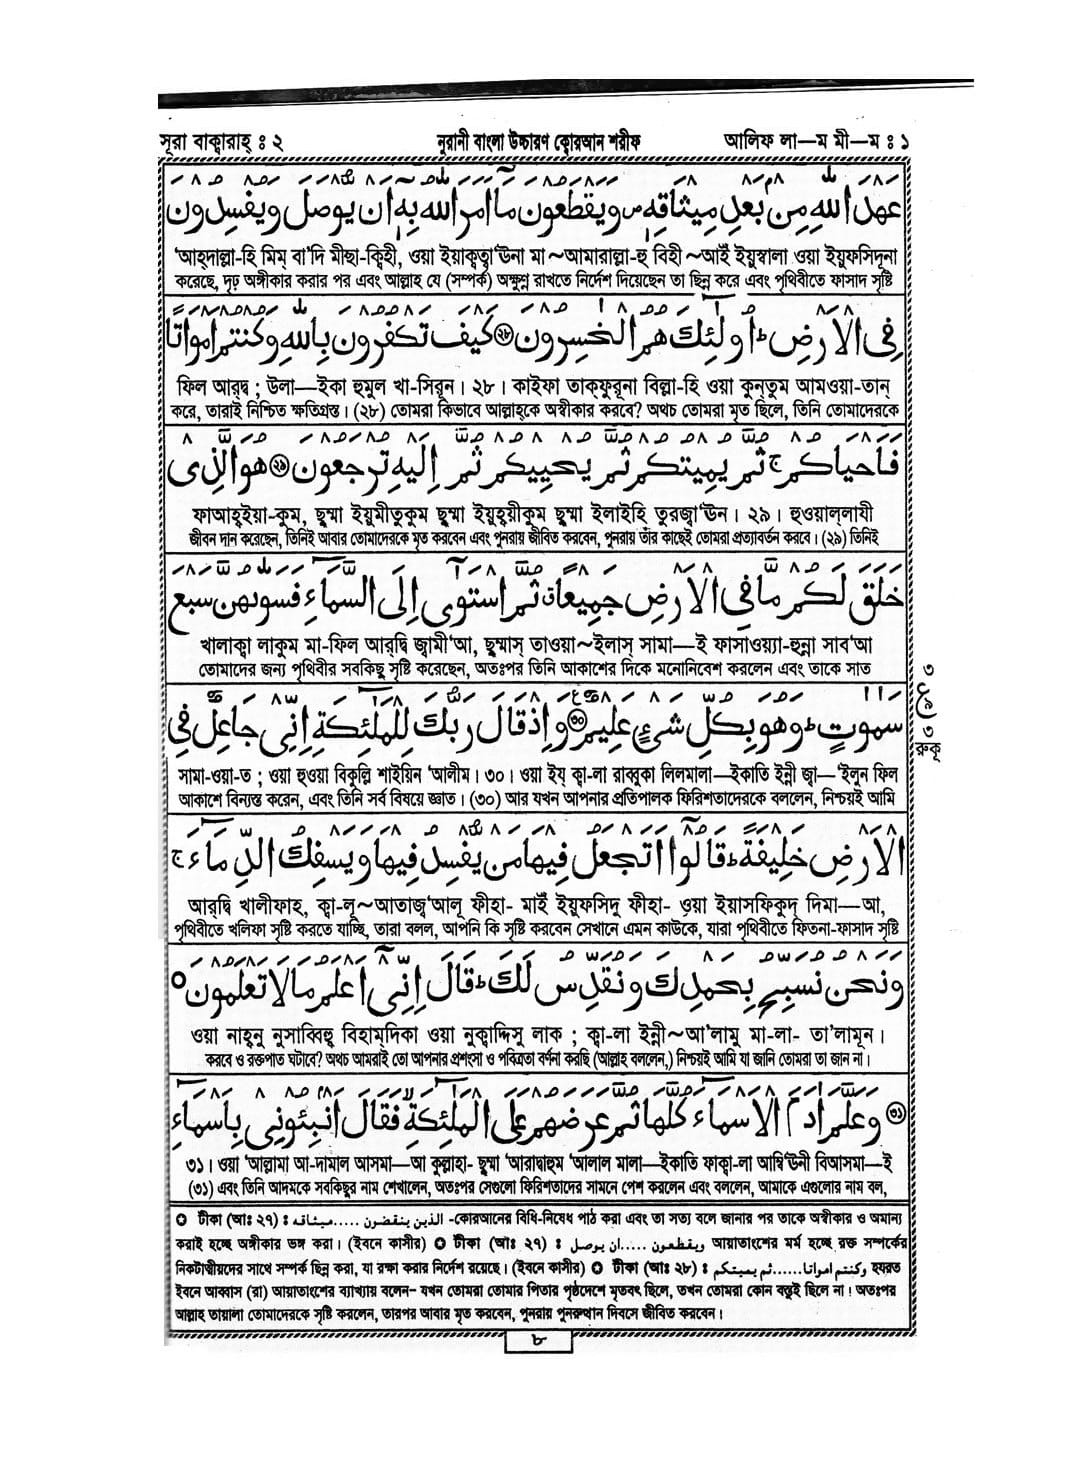 সূরা বাক্বারাহ্ ঃ ২ নুরানী বাংলা উচ্চারণ ক্বোরআন শরীফ আলিফ লা—ম মী—ম ঃ ১
عَهْدَ اللهِ مِنْ بَعْدِ مِيْثَاقِهٖ ص وَيَقْطَعُوْنَ مَا اَمَرَ اللهُ بِهٖ اَنْ يُّوْصَلَ وَيُفْسِدُوْنَ
‘আহ্দাল্লা-হি মিম্ বা’দি মীছা-ক্বিহী, ওয়া ইয়াক্বত্বা‘ঊনা মা ~আমারাল্লা-হু বিহী ~আইঁ ইয়ুস্বালা ওয়া ইয়ুফসিদূনা
করেছে, দৃঢ় অঙ্গীকার করার পর এবং আল্লাহ যে (সম্পর্ক) অক্ষুণ্ন রাখতে নির্দেশ দিয়েছেন তা ছিন্ন করে এবং পৃথিবীতে ফাসাদ সৃষ্টি
فِى الْاَرْضِ ط اُولٰٓئِكَ هُمُ الْخٰسِرُوْنَ ۞ ২৮ كَيْفَ تَكْفُرُوْنَ بِاللهِ وَكُنْتُمْ اَمْوَاتًا
ফিল আর্‌দ্ব ; উলা—ইকা হুমুল খা-সিরূন। ২৮। কাইফা তাক্‌ফুরূনা বিল্লা-হি ওয়া কুন্‌তুম আমওয়া-তান্
করে, তারাই নিশ্চিত ক্ষতিগ্রস্ত। (২৮) তোমরা কিভাবে আল্লাহ্‌কে অস্বীকার করবে? অথচ তোমরা মৃত ছিলে, তিনি তোমাদেরকে
فَاَحْيَاكُمْ ج ثُمَّ يُمِيْتُكُمْ ثُمَّ يُحْيِيْكُمْ ثُمَّ اِلَيْهِ تُرْجَعُوْنَ ۞ ২৯ هُوَ الَّذِىْ
ফাআহ্‌ইয়া-কুম, ছুম্মা ইয়ুমীতুকুম ছুম্মা ইয়ুহ্‌য়ীকুম ছুম্মা ইলাইহি তুরজ্বা‘ঊন। ২৯। হুওয়াল্‌লাযী
জীবন দান করেছেন, তিনিই আবার তোমাদেরকে মৃত করবেন এবং পুনরায় জীবিত করবেন, পুনরায় তাঁর কাছেই তোমরা প্রত্যাবর্তন করবে। (২৯) তিনিই
خَلَقَ لَكُمْ مَّا فِى الْاَرْضِ جَمِيْعًا ق ثُمَّ اسْتَوٰٓى اِلَى السَّمَآءِ فَسَوّٰىهُنَّ سَبْعَ
খালাক্বা লাকুম মা-ফিল আর্‌দ্বি জ্বামী‘আ, ছুম্মাস্ তাওয়া~ইলাস্ সামা—ই ফাসাওয়্যা-হুন্না সাব‘আ
তোমাদের জন্য পৃথিবীর সবকিছু সৃষ্টি করেছেন, অতঃপর তিনি আকাশের দিকে মনোনিবেশ করলেন এবং তাকে সাত
سَمٰوٰتٍ ط وَهُوَ بِكُلِّ شَىْءٍ عَلِيْمٌ ۞ ৩০ وَاِذْ قَالَ رَبُّكَ لِلْمَلٰٓئِكَةِ اِنِّىْ جَاعِلٌ فِى
সামা-ওয়া-ত ; ওয়া হুওয়া বিকুল্লি শাইয়িন ‘আলীম। ৩০। ওয়া ইয্ ক্বা-লা রাব্বুকা লিলমালা—ইকাতি ইন্নী জ্বা—‘ইলুন ফিল
আকাশে বিন্যস্ত করেন, এবং তিনি সর্ব বিষয়ে জ্ঞাত। (৩০) আর যখন আপনার প্রতিপালক ফিরিশতাদেরকে বললেন, নিশ্চয়ই আমি
৩
ع
৩
রুকূ
الْاَرْضِ خَلِيْفَةً ط قَالُوْٓا اَتَجْعَلُ فِيْهَا مَنْ يُّفْسِدُ فِيْهَا وَيَسْفِكُ الدِّمَآءَ ج
আর্‌দ্বি খালীফাহ, ক্বা-লূ~আতাজ্ব‘আলূ ফীহা- মাইঁ ইয়ুফসিদু ফীহা- ওয়া ইয়াসফিকুদ্ দিমা—আ,
পৃথিবীতে খলিফা সৃষ্টি করতে যাচ্ছি, তারা বলল, আপনি কি সৃষ্টি করবেন সেখানে এমন কাউকে, যারা পৃথিবীতে ফিতনা-ফাসাদ সৃষ্টি
وَنَحْنُ نُسَبِّحُ بِحَمْدِكَ وَنُقَدِّسُ لَكَ ط قَالَ اِنِّىْٓ اَعْلَمُ مَا لَا تَعْلَمُوْنَ ○
ওয়া নাহ্‌নু নুসাব্বিহু বিহাম্‌দিকা ওয়া নুক্বাদ্দিসু লাক ; ক্বা-লা ইন্নী~আ’লামু মা-লা- তা’লামূন।
করবে ও রক্তপাত ঘটাবে? অথচ আমরাই তো আপনার প্রশংসা ও পবিত্রতা বর্ণনা করছি (আল্লাহ বললেন,) নিশ্চয়ই আমি যা জানি তোমরা তা জান না।
৩১ وَعَلَّمَ اٰدَمَ الْاَسْمَآءَ كُلَّهَا ثُمَّ عَرَضَهُمْ عَلَى الْمَلٰٓئِكَةِ فَقَالَ اَنْبِئُوْنِىْ بِاَسْمَآءِ
৩১। ওয়া ‘আল্লামা আ-দামাল আসমা—আ কুল্লাহা- ছুম্মা ‘আরাদ্বাহুম ‘আলাল মালা—ইকাতি ফাক্বা-লা আম্বি‘ঊনী বিআসমা—ই
(৩১) এবং তিনি আদমকে সবকিছুর নাম শেখালেন, অতঃপর সেগুলো ফিরিশতাদের সামনে পেশ করলেন এবং বললেন, আমাকে এগুলোর নাম বল,
✪ টীকা (আঃ ২৭) ঃ الذين ينقضون .....ميثاقه -কোরআনের বিধি-নিষেধ পাঠ করা এবং তা সত্য বলে জানার পর তাকে অস্বীকার ও অমান্য
করাই হচ্ছে অঙ্গীকার ভঙ্গ করা। (ইবনে কাসীর) ✪ টীকা (আঃ ২৭) ঃ ويقطعون .....ان يوصل আয়াতাংশের মর্ম হচ্ছে রক্ত সম্পর্কের
নিকটাত্মীয়দের সাথে সম্পর্ক ছিন্ন করা, যা রক্ষা করার নির্দেশ রয়েছে। (ইবনে কাসীর) ✪ টীকা (আঃ ২৮) ঃ وكنتم امواتا......ثم يميتكم হযরত
ইবনে আব্বাস (রা) আয়াতাংশের ব্যাখ্যায় বলেন– যখন তোমরা তোমার পিতার পৃষ্ঠদেশে মৃতবৎ ছিলে, তখন তোমরা কোন বস্তুই ছিলে না। অতঃপর
আল্লাহ তায়ালা তোমাদেরকে সৃষ্টি করলেন, তারপর আবার মৃত করবেন, পুনরায় পুনরুত্থান দিবসে জীবিত করবেন।
৮